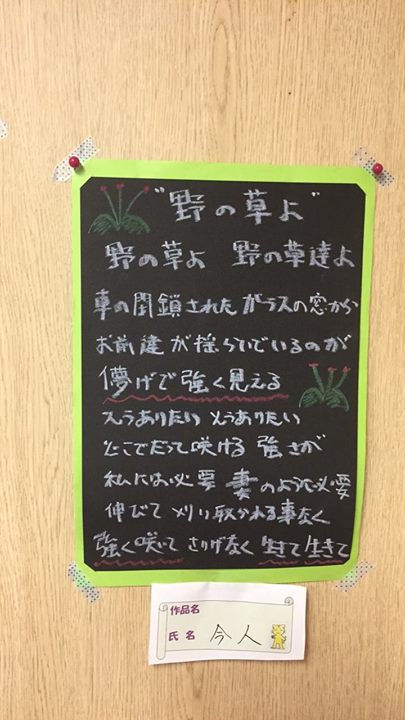 "野の草よ"
野の草よ 野の草達よ
車の閉鎖された ガラスの窓から
お前達が揺らいでいるのが
儚げで強く見える
そうありたい そうありたい
どこでだって咲ける 強さが
私には必要 妻のように必要
伸びて 刈り取られる事なく
強く咲いて さりげなく 生きて 生きて
作品名
氏名 今人